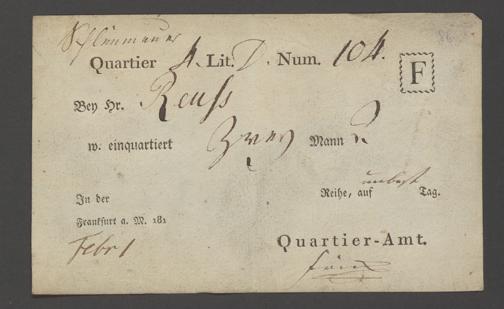 Quartier 4. Lit. D. Num. 104.
F
Bey Hr. Reuss
w. einquartiert Zwey Mann 2.
unbest
Reihe, auf Tag.
In der
Frankfurt a. M. 181
Febr
Quartier-Amt.